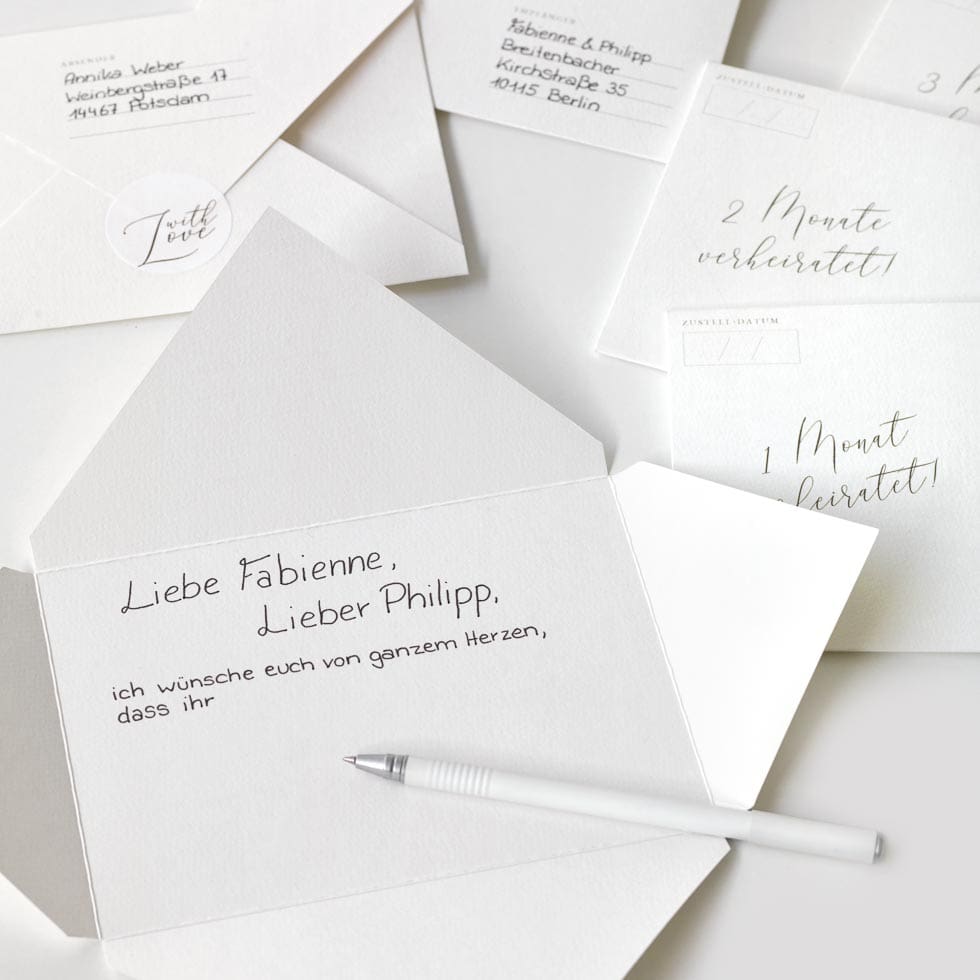 ABSENDER
Annika Weber
Weinbergstraße 17
14467 Potsdam
with
Love
EMPFÄNGER
Fabienne & Philipp
Breitenbacher
Kirchstraße 35
10115 Berlin
ZUSTELL-DATUM
2 Monate
verheiratet!
3
ZUSTELL-DATUM
1 Monat
heiratet!
Liebe Fabienne,
Lieber Philipp,
ich wünsche euch von ganzem Herzen,
dass ihr